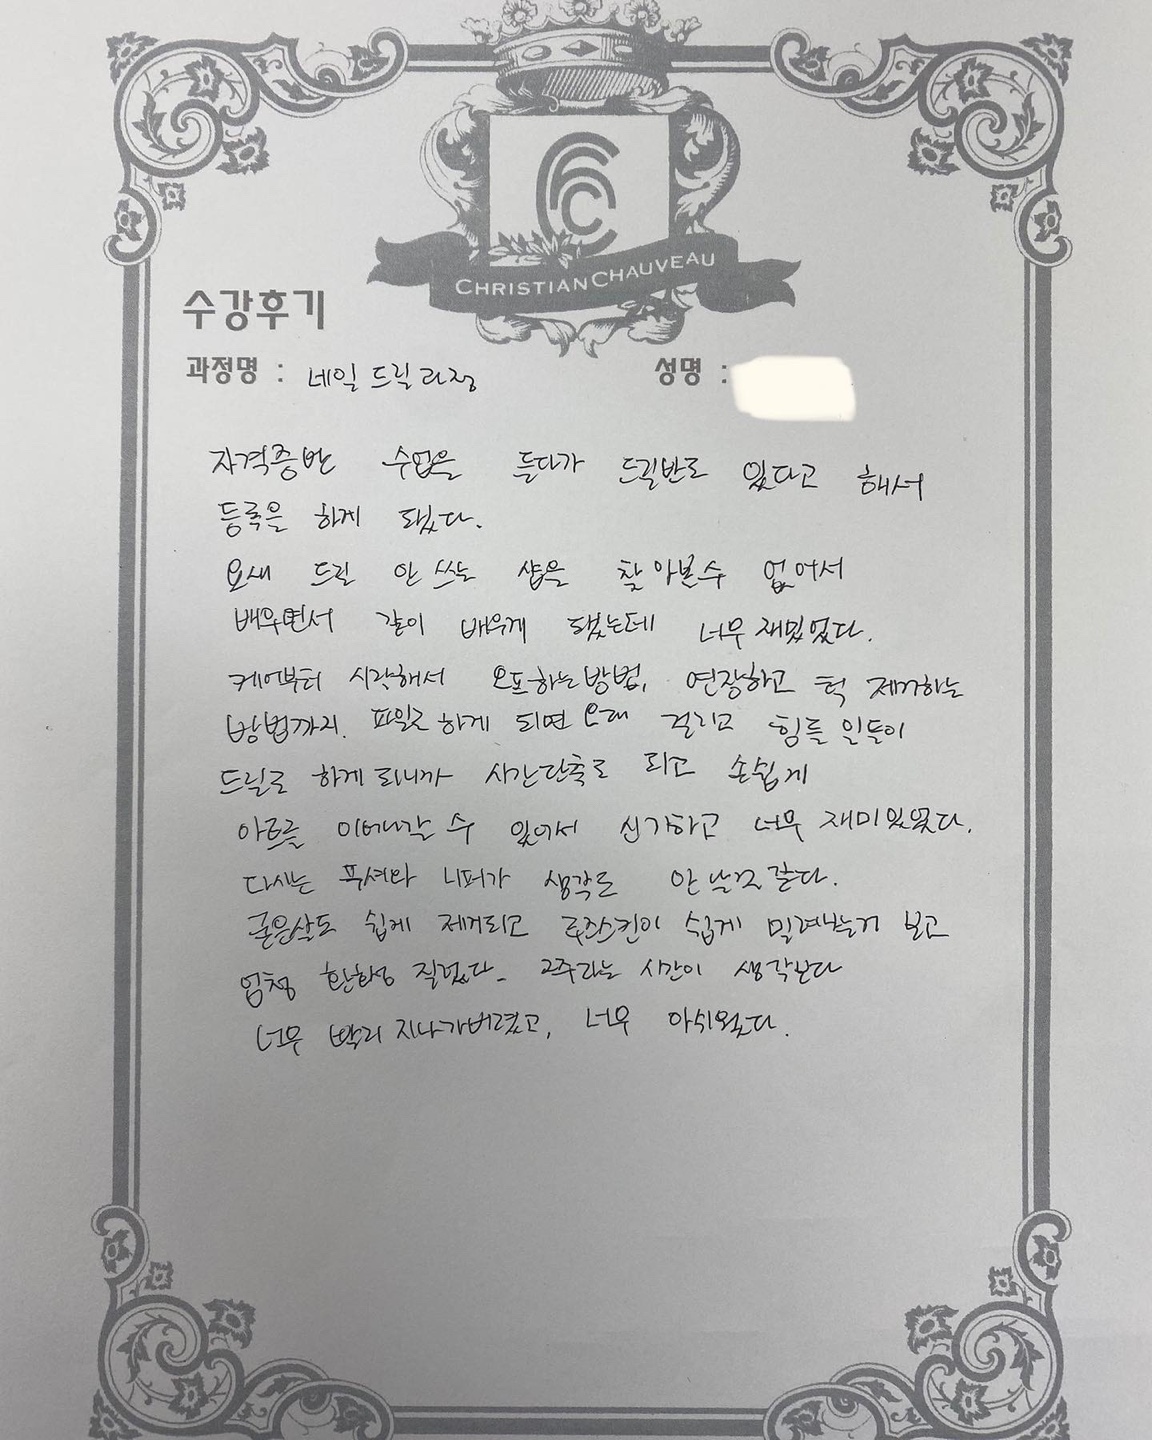 CHRISTIAN CHAUVEAU
수강후기
과정명 : 네일 드릴 과정
성명 :
자격증반 수업을 듣다가 드릴반도 있다고 해서
등록을 하게 됐다.
요새 드릴 안 쓰는 샵을 찾아볼수 없어서
배우면서 같이 배우게 됐는데 너무 재밌었다.
케어부터 시작해서 오프하는방법, 연장하고 턱 제거하는
방법까지. 파일로 하게 되면 오래 걸리고 힘들 일들이
드릴로 하게되니까 시간단축도 되고 손쉽게
아트를 할 수 있어서 신기하고 너무 재미있었다.
다시는 푸셔와 니퍼가 생각도 안 날것 같다.
굳은살도 쉽게 제거되고 루즈스킨이 쉽게 밀려나는거 보고
엄청 환희성 질렀다. 2주라는 시간이 생각보다
너무 빨리 지나가버렸고, 너무 아쉬웠다.